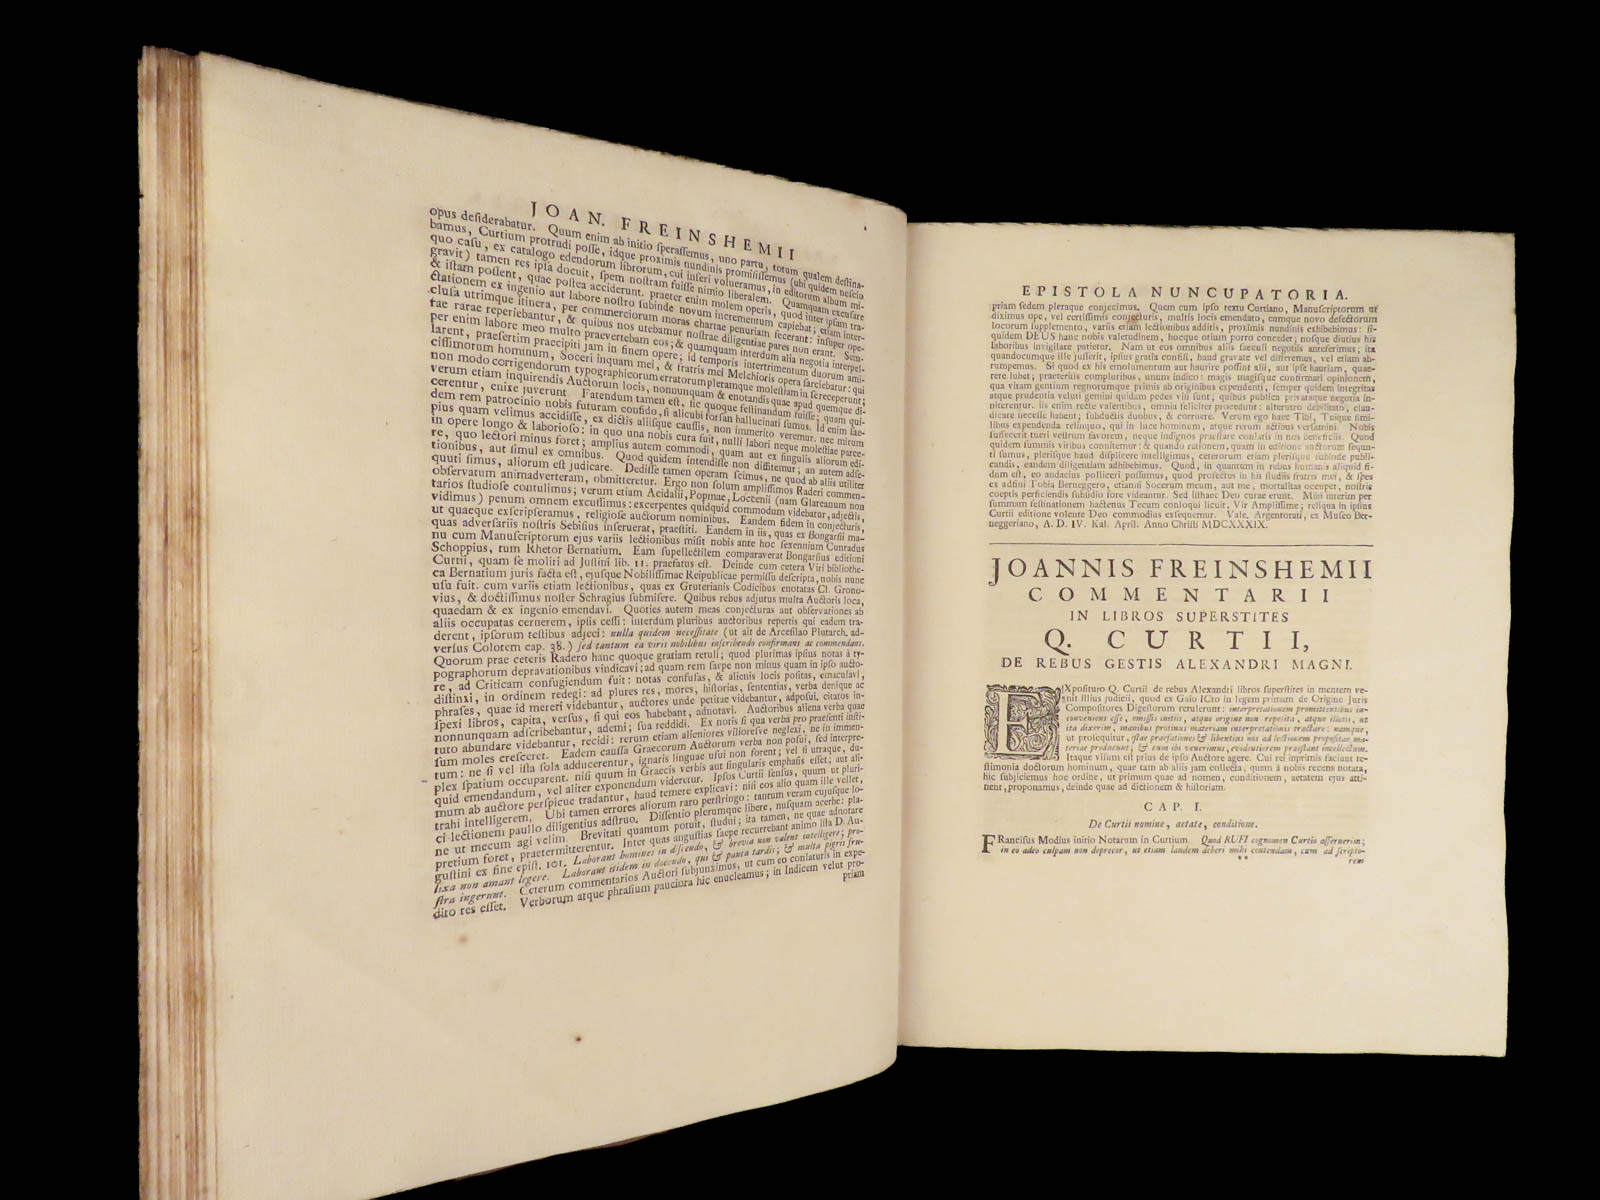 JOAN. FREINSHEMII
opus desiderabatur. Quum enim ab initio sperassemus, uno partu, totum qualem destina-
bamus, Curtium protrudi posse, idque proximis nundinis promisissemus (ubi quidem nescio
quo casu, ex catalogo edendorum librorum, cui inseri volueramus, in editorum album mi-
gravit) tamen res ipsa docuit, spem nostram fuisse nimio liberalem. Quamquam excusare
& istam possent, quae postea acciderunt. praeter enim molem operis, quod inter ipsam tra-
ctationem ex ingenio aut labore nostro subinde novum incrementum capiebat; etiam inter-
clusa utrimque itinera, per commerciorum moras chartae penuriam fecerant: insuper ope-
rae rarae reperiebantur, & quibus nos utebamur nostrae diligentiae pares non erant. Sem-
per enim labore meo multo praevertebam eos; & quamquam interdum alia negotia interpel-
larent, praesertim praecipiti jam in finem opere; id temporis intertrimentum duorum ami-
cissimorum hominum, Soceri inquam mei, & fratris mei Melchioris opera sarciebatur: qui
non modo corrigendorum typographicorum erratorum pleramque molestiam in se receperunt;
verum etiam inquirendis Auctorum locis, nonnunquam & enotandis quae apud quemque di-
cerentur, enixe juverunt. Fatendum tamen est, hic quoque festinandum fuisse; quam qui-
dem rem patrocinio nobis futuram confido, si alicubi forsan hallucinati sumus. Id enim sae-
pius quam velimus accidisse, ex dictis aliisque caussis, non immerito veremur. nec mirum
in opere longo & laborioso: in quo una nobis cura fuit, nulli labori neque molestiae parce-
re, quo lectori minus foret; amplius autem commodi, quam aut ex singulis aliorum edi-
tionibus, aut simul ex omnibus. Quod quidem intendisse non diffitemur; an autem adse-
quuti simus, aliorum est judicare. Dedisse tamen operam scimus, ne quod ab aliis utiliter
observatum animadverteram, obmitteretur. Ergo non solum amplissimos Raderi commen-
tarios studiose contulimus; verum etiam Acidalii, Popmae, Loccenii (nam Glareanum non
vidimus) penum omnem excussimus: excerpentes quidquid commodum videbatur, adjectis,
ut quaeque exscripseramus, religiose auctorum nominibus. Eandem fidem in conjecturis,
quas adversariis nostris Sebisius inseruerat, praestiti. Eandem in iis, quas ex Bongarsii ma-
nu cum Manuscriptorum ejus variis lectionibus misit nobis ante hoc sexennium Cunradus
Schoppius, tum Rhetor Bernatium. Eam supellectilem comparaverat Bongarsius editioni
Curtii, quam se moliri ad Justini lib. 11. praefatus est. Deinde cum cetera Viri bibliothe-
ca Bernatium juris facta est, ejusque Nobilissimae Reipublicae permissu descripta, nobis nunc
usu fuit. cum variis etiam lectionibus, quas ex Gruterianis Codicibus enotatas Cl. Grono-
vius, & doctissimus noster Schragius submisere. Quibus rebus adjutus multa Auctoris loca,
quaedam & ex ingenio emendavi. Quoties autem meas conjecturas aut observationes ab
aliis occupatas cernerem, ipsis cessi: interdum pluribus auctoribus repertis qui eadem tra-
derent, ipsorum testibus adjeci: nulla quidem necessitate (ut ait de Arcesilao Plutarch. ad-
versus Colotem cap. 38.) sed tantum ea viris nobilibus inscribendo confirmans ac commendans.
Quorum prae ceteris Radero hanc quoque gratiam retuli; quod plurimas ipsius notas à ty-
pographorum depravationibus vindicavi; ad quam rem saepe non minus quam in ipso aucto-
re, ad Criticam confugiendum fuit: notas confusas, & alienis locis positas, emaculavi,
distinxi, in ordinem redegi: ad plures res, mores, historias, sententias, verba denique ac
phrases, quae id mereri videbantur, auctores unde petitae videbantur, adposui. citatos in-
spexi libros, capita, versus, si qui eos habebant, adnotavi. Auctoribus aliena verba quae
nonnunquam adscribebantur, ademi; sua reddidi. Ex notis si qua verba pro praesenti insti-
tuto abundare videbantur, recidi: rerum etiam alieniores vilioresve neglexi, ne in immen-
sum moles cresceret. Eadem caussa Graecorum Auctorum verba non posui, sed interpre-
tum: ne si vel ista sola adducerentur, ignaris linguae usui non forent; vel si utraque, du-
plex spatium occuparent. nisi quum in Graecis verbis aut singularis emphasis esset; aut ali-
quid emendandum, vel aliter exponendum videretur. Ipsos Curtii sensus, quum ut pluri-
mum ab auctore perspicue tradantur, haud temere explicavi: nisi eos alio quam ille vellet,
trahi intelligerem. Ubi tamen errores aliorum raro perstringo: tantum veram cujusque lo-
ci lectionem paullo diligentius adstruo. Dissentio plerumque libere, nusquam acerbe: pla-
ne ut mecum agi velim. Brevitati quantum potuit, studui; ita tamen, ne quae adnotare
pretium foret, praetermitterentur. Inter quas angustias saepe recurrebat animo illa D. Au-
gustini ex fine epist. 101. Laborant homines in discendo, & brevia non valent intelligere; pro-
lixa non amant legere. Laborant itidem in docendo, qui & pauca tardis; & multa pigris fru-
stra ingerunt. Ceterum commentarios Auctori subjunximus, ut cum eo conlaturis in expe-
dito res esset. Verborum atque phrasium pauciora hic enucleamus; in Indicem velut pro-
priam
EPISTOLA NUNCUPATORIA.
priam sedem pleraque conjecimus. Quem cum ipso textu Curtiano, Manuscriptorum ut
diximus ope, vel certissimis conjecturis, multis locis emendato, cumque novo desectorum
locorum supplemento, variis etiam lectionibus additis, proximis nundinis exhibebimus: si-
quidem DEUS hanc nobis valetudinem, hocque otium porro conceder; nosque diutius his
laboribus invigilare patietur. Nam ut eos omnibus aliis saeculi negotiis anteferimus; ita
quandocumque ille jusserit, ipsius gratia confisi, haud gravate vel differemus, vel etiam ab-
rumpemus. Si quod ex his emolumentum aut haurire possint alii, aut ipse hauriam, quae-
rere lubet; praeteritis compluribus, unum indico: magis magisque confirmari opinionem,
qua vitam gentium regnorumque primis ab originibus expendenti, semper quidem integritas
atque prudentia veluti gemini quidam pedes visi sunt; quibus publica privataque negotia in-
niterentur. iis enim recte valentibus, omnia feliciter procedunt: alterutro debilitato, clau-
dicare necesse habent; subductis duobus, & corruere. Verum ego haec Tibi, Tuique simi-
libus expendenda relinquo, qui in luce hominum, atque rerum actibus versamini. Nobis
suffecerit tueri vestrum favorem, neque indignos praestare conlatis in nos beneficiis. Quod
quidem summis viribus connitemur: & quando rationem, quam in editione auctorum sequu-
ti sumus, plerisque haud displicere intelligimus, ceterorum etiam plerisque subinde publi-
candis, eandem diligentiam adhibebimus. Quod, in quantum in rebus humanis aliquid fi-
dum est, eo audacius polliceri possumus, quod profectus in his studiis fratris mei, & spes
ex adfini Tobia Berneggero, etiamsi Socerum meum, aut me, mortalitas occupet, nostris
coeptis perficiendis subsidio fore videantur. Sed istihaec Deo curae erunt. Mihi interim per
summam festinationem hactenus Tecum conloqui licuit, Vir Amplissime; reliqua in ipsius
Curtii editione volente Deo commodius exsequemur. Vale. Argentorati, ex Museo Ber-
neggeriano, A. D. IV. Kal. April. Anno Christi MDCXXXIX.
JOANNIS FREINSHEMII
COMMENTARII
IN LIBROS SUPERSTITES
Q. CURTII,
DE REBUS GESTIS ALEXANDRI MAGNI.
EXposituro Q. Curtii de rebus Alexandri libros superstites in mentem ve-
nit illius judicii, quod ex Gaio ICto in legem primam de Origine Juris
Compositores Digestorum retulerunt: interpretationem promittentibus in-
conveniens esse, omissis initiis, atque origine non repetita, atque illotis, ut
ita dixerim, manibus protinus materiam interpretationis tractare: namque,
ut prosequitur, istae praefationes & libentius nos ad lectionem propositae ma-
teriae producunt; & cum ibi venerimus, evidentiorem praestant intellectum.
Itaque visum est prius de ipso Auctore agere. Cui rei inprimis faciunt te-
stimonia doctorum hominum, quae tam ab aliis jam collecta, quam à nobis recens notata,
hic subjiciemus hoc ordine, ut primum quae ad nomen, conditionem, aetatem ejus atti-
nent, proponamus, deinde quae ad dictionem & historiam.
CAP. I.
De Curtii nomine, aetate, conditione.
FRanciscus Modius initio Notarum in Curtium. Quod RUFI cognomen Curtio asseruerim;
in eo adeo culpam non deprecor, ut etiam laudem deberi mihi contendam, cum ad scripto-
** rem